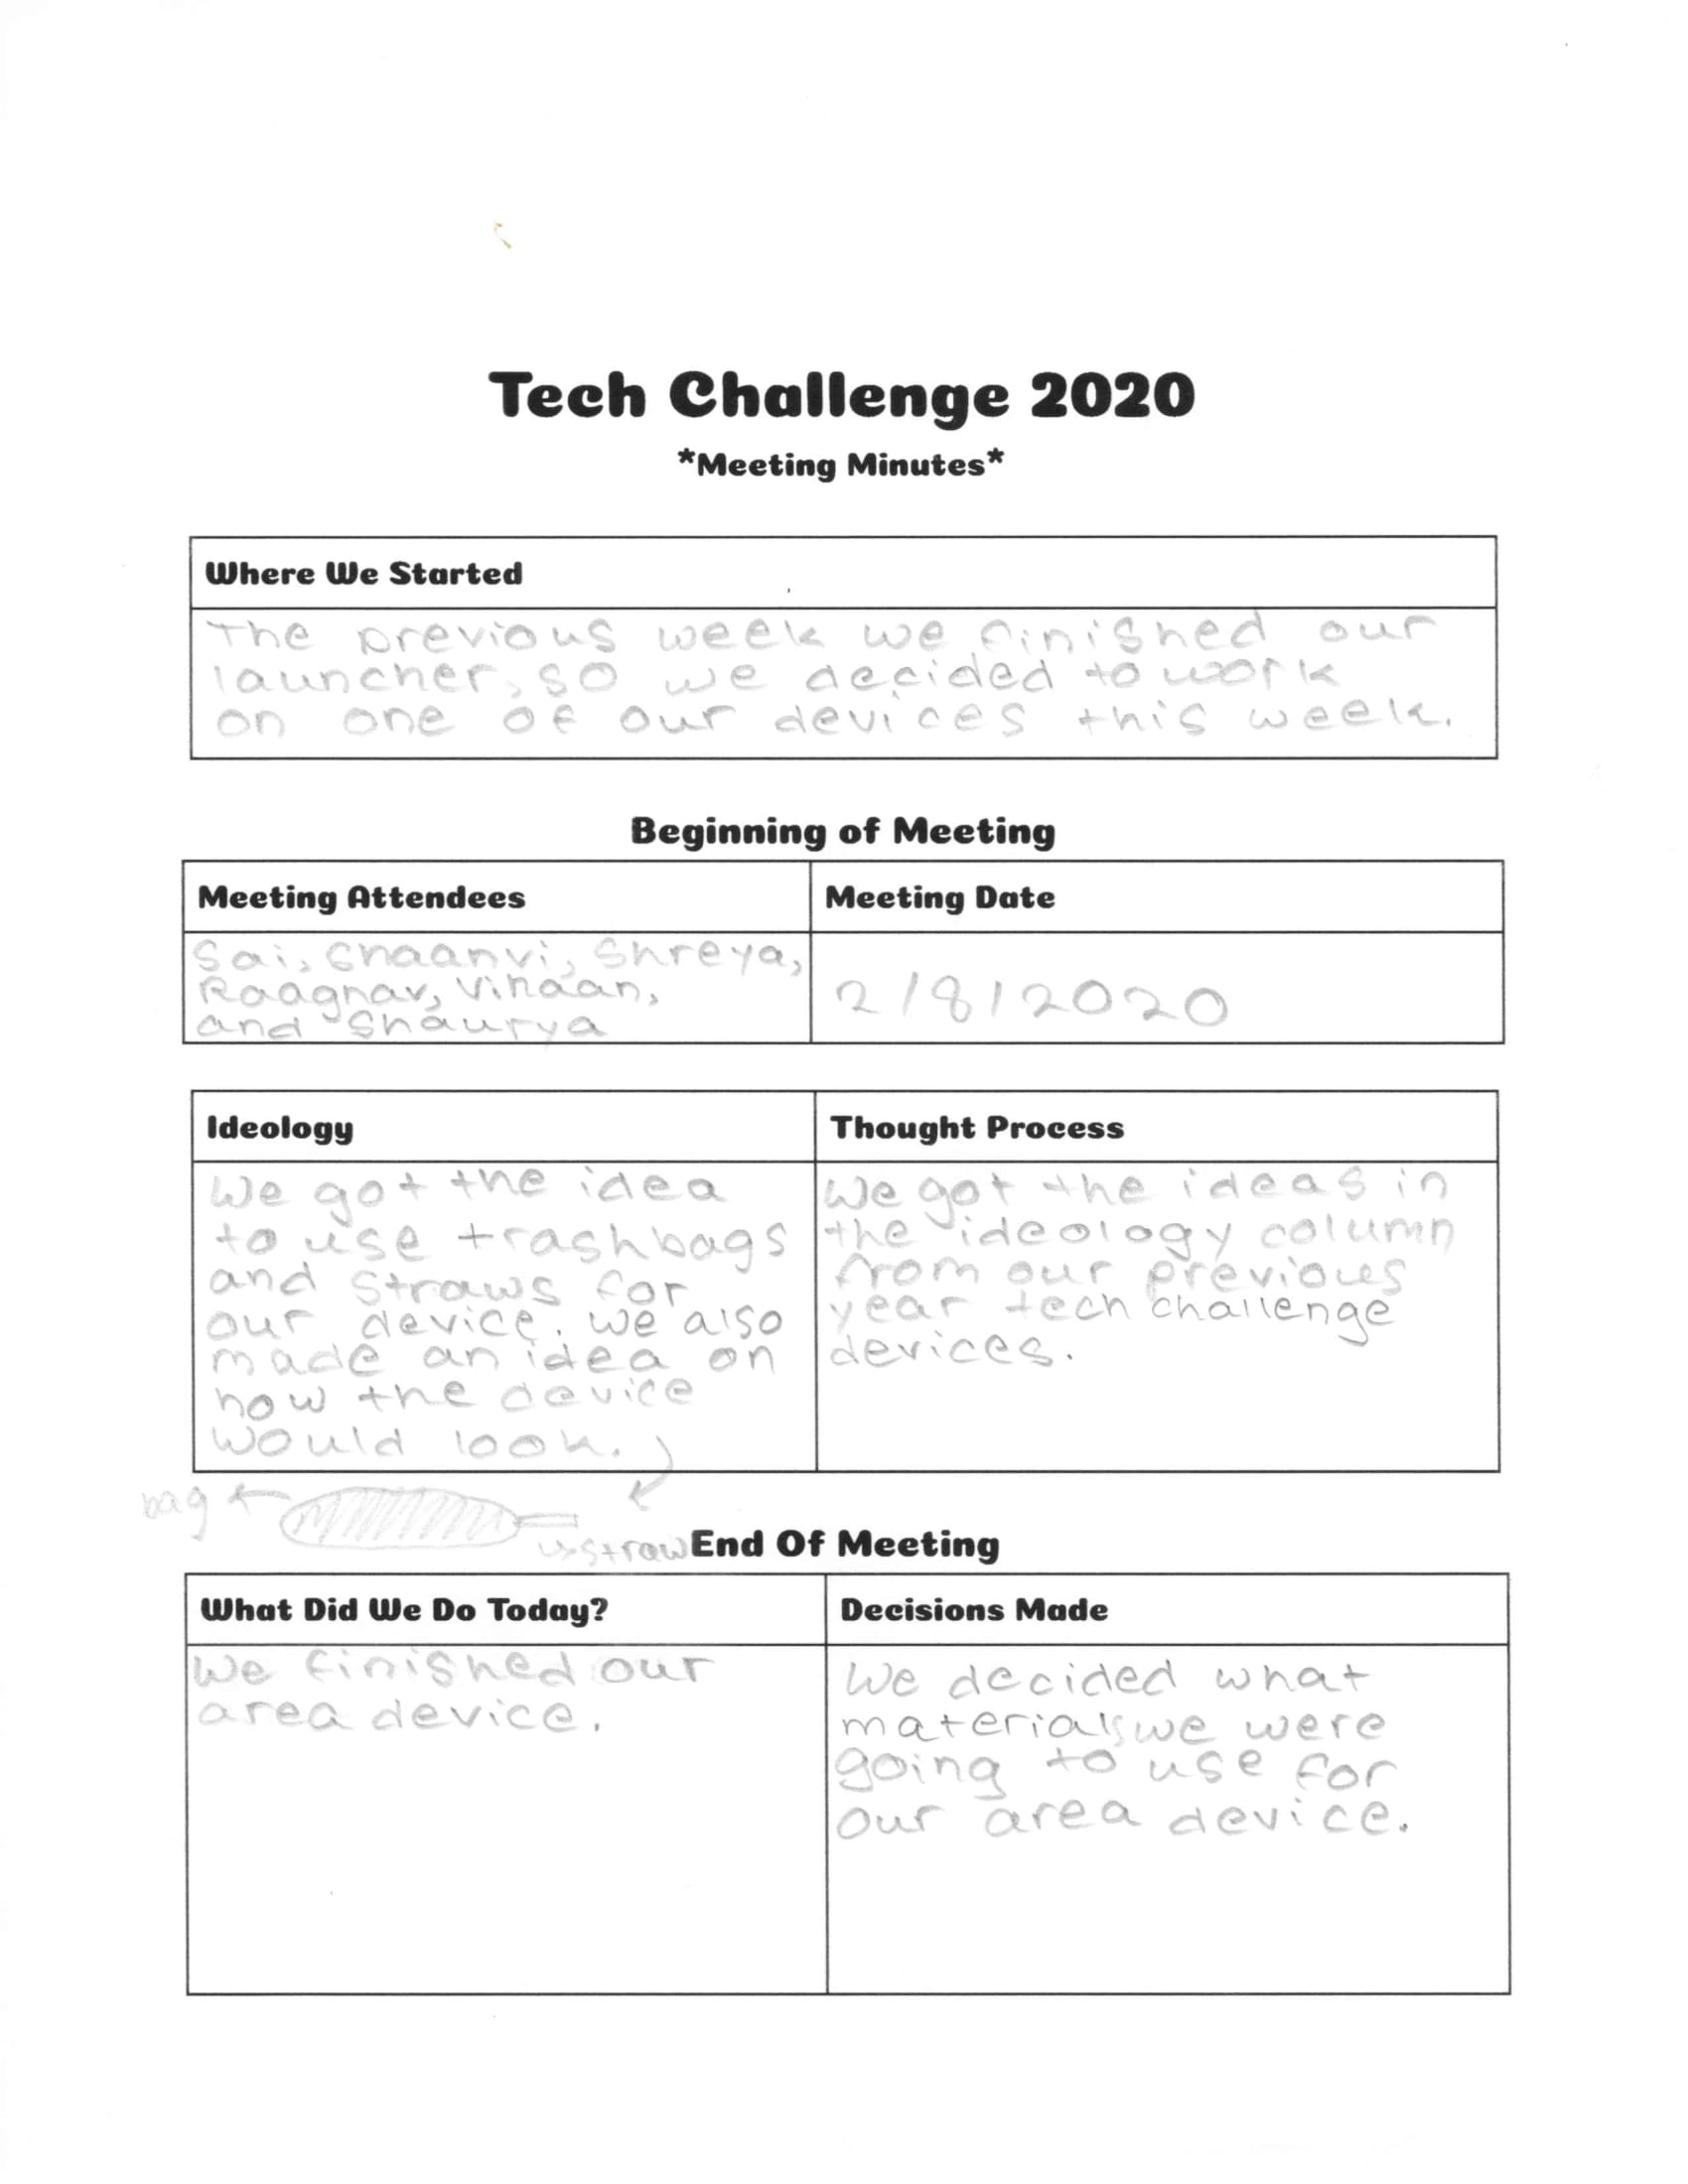 Tech Challenge 2020
*Meeting Minutes*
Where We Started
The previous week we finished our
launcher, so we decided to work
on one of our devices this week.
Beginning of Meeting
Meeting Attendees
Meeting Date
Sai, Shaanvi, Shreya,
Raaghav, Vihaan,
and Shaurya
2/8/2020
Ideology
Thought Process
We got the idea
to use trashbags
and straws for
our device. We also
made an idea on
how the device
would look.
We got the ideas in
the ideology column
from our previous
year tech challenge
devices.
bag
straw
End Of Meeting
What Did We Do Today?
Decisions Made
We finished our
area device.
We decided what
materials we were
going to use for
our area device.